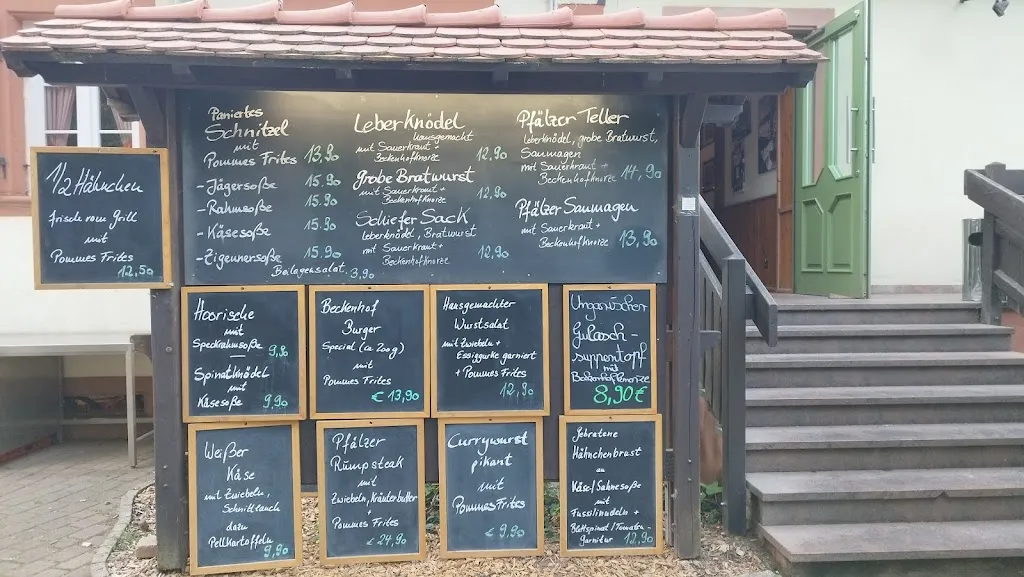 1/2 Hähnchen
frisch vom Grill
mit
Pommes Frites
12,50
Paniertes
Schnitzel
mit
Pommes Frites 13,90
- Jägersoße 15,90
- Rahmsoße 15,90
- Käsesoße 15,90
- Zigeunersoße 15,90
Beilagensalat 3,90
Leberknödel
hausgemacht
mit Sauerkraut +
Beckenhofknorze 12,90
grobe Bratwurst
mit Sauerkraut +
Beckenhofknorze 12,90
Schiefer Sack
Leberknödel, Bratwurst
mit Sauerkraut +
Beckenhofknorze 12,90
Pfälzer Teller
Leberknödel, grobe Bratwurst,
Saumagen
mit Sauerkraut +
Beckenhofknorze 14,90
Pfälzer Saumagen
mit Sauerkraut +
Beckenhofknorze 13,90
Hoorische
mit
Speckrahmsoße
9,90
Spinatknödel
mit
Käsesoße 9,90
Beckenhof
Burger
Special (ca 200g)
mit
Pommes Frites
€ 13,90
Hausgemachter
Wurstsalat
mit Zwiebeln +
Essiggurke garniert
+ Pommes Frites
12,90
Ungarischer
Gulasch-
suppentopf
mit
Beckenhofknorze
8,90€
Weißer
Käse
mit Zwiebeln,
Schnittlauch
dazu
Pellkartoffeln
9,90
Pfälzer
Rumpsteak
mit
Zwiebeln, Kräuterbutter
+
Pommes Frites
€ 24,90
Currywurst
pikant
mit
Pommes Frites
€ 9,90
Gebratene
Hähnchenbrust
an
Käse/Sahnesoße
mit
Fussilinudeln +
Blattspinat/Tomaten-
garnitur 12,90